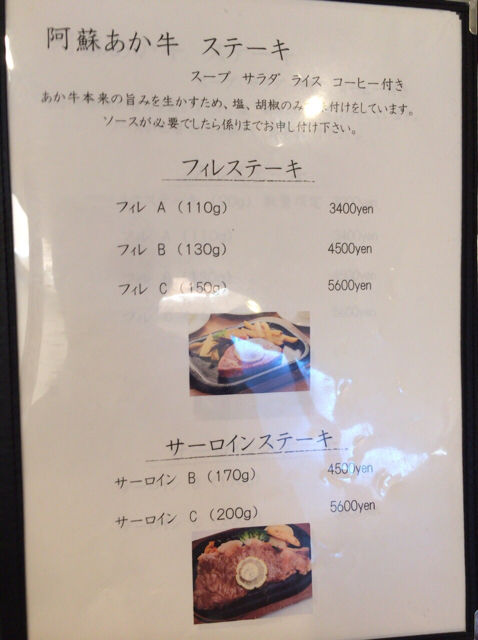 阿蘇あか牛 ステーキ
スープ サラダ ライス コーヒー付き
あか牛本来の旨みを生かすため、塩、胡椒のみ味付けをしています。
ソースが必要でしたら係りまでお申し付け下さい。
フィレステーキ
フィレ A (110g) 3400yen
フィレ B (130g) 4500yen
フィレ C (150g) 5600yen
サーロインステーキ
サーロイン B (170g) 4500yen
サーロイン C (200g) 5600yen